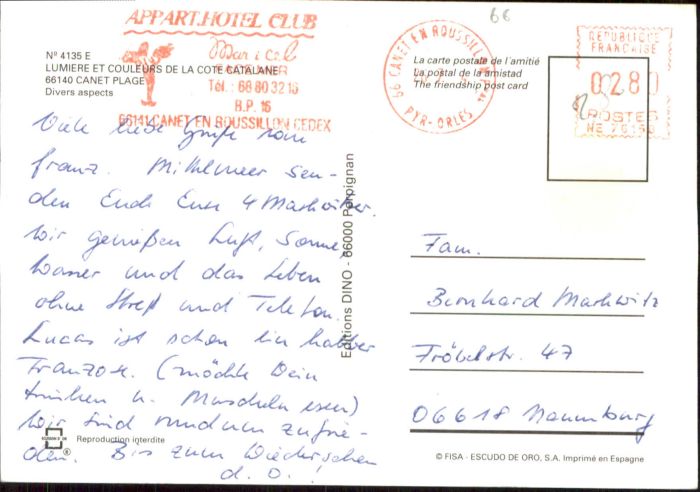 66
APPART.HOTEL CLUB
Mar i cel
Tél.: 68 80 32 16
B.P. 16
66141 CANET EN ROUSSILLON CEDEX
Nº 4135 E
LUMIERE ET COULEURS DE LA COTE CATALANE
66140 CANET PLAGE
Divers aspects
La carte postale de l'amitié
La postal de la amistad
The friendship post card
66 CANET EN ROUSSILLON
PYR-ORLES
REPUBLIQUE
FRANCAISE
0280
POSTES
Viele liebe Grüße vom
franz. Mittelmeer sen-
den Euch Eure 4 Markwitzer.
Wir genießen Luft, Sonne,
Wasser und das Leben
ohne Streß und Telefon.
Lucas ist schon ein halber
Franzose. (möchte Wein
trinken u. Muscheln essen)
Wir sind rundum zufrie-
den. Bis zum Wiedersehen
d. O.
Editions DINO - 66000 Perpignan
Fam.
Bernhard Markwitz
Fröbelstr. 47
06618 Naumburg
Reproduction interdite
© FISA - ESCUDO DE ORO, S.A. Imprimé en Espagne